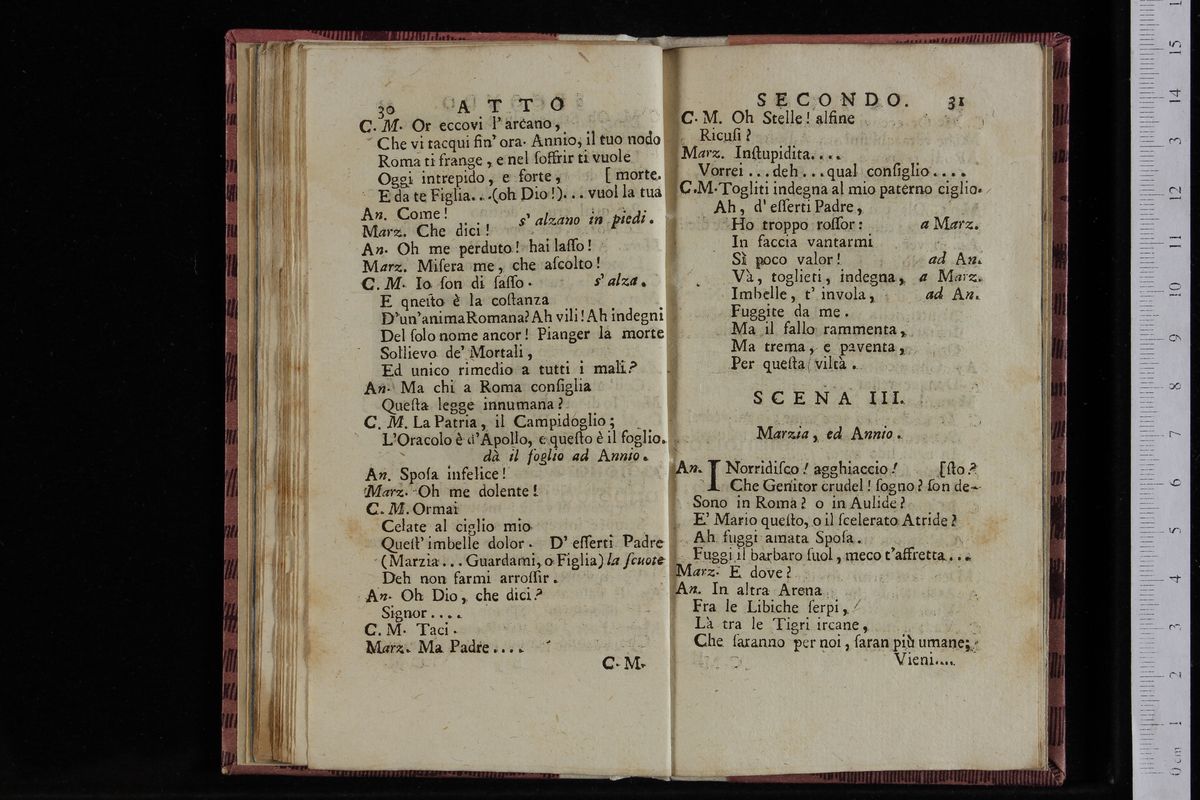 30 ATTO
C. M. Or eccovi l'arcano,
Che vi tacqui fin' ora. Annio, il tuo nodo
Roma ti frange, e nel soffrir ti vuole
Oggi intrepido, e forte, [morte.
E da te Figlia...(oh Dio!)... vuol la tua
An. Come! s' alzano in piedi.
Marz. Che dici!
An. Oh me perduto! hai lasso!
Marz. Misera me, che ascolto!
C. M. Io son di sasso. s' alza.
E qnesto è la costanza
D'un'anima Romana? Ah vili! Ah indegni
Del solo nome ancor! Pianger la morte
Sollievo de' Mortali,
Ed unico rimedio a tutti i mali?
An. Ma chi a Roma consiglia
Questa legge innumana?
C. M. La Patria, il Campidoglio;
L'Oracolo è d'Apollo, e questo è il foglio.
dà il foglio ad Annio.
An. Sposa infelice!
Marz. Oh me dolente!
C. M. Ormai
Celate al ciglio mio
Quest' imbelle dolor. D' esserti Padre
(Marzia... Guardami, o Figlia) la scuote
Deh non farmi arrossir.
An. Oh Dio, che dici?
Signor....
C. M. Taci.
Marz. Ma Padre....
C. M.
SECONDO. 31
C. M. Oh Stelle! alfine
Ricusi?
Marz. Instupidita....
Vorrei...deh...qual consiglio....
C.M. Togliti indegna al mio paterno ciglio.
Ah, d' esserti Padre,
Ho troppo rossor: a Marz.
In faccia vantarmi
Sì poco valor! ad An.
Và, toglieti, indegna, a Marz.
Imbelle, t' invola, ad An.
Fuggite da me.
Ma il fallo rammenta,
Ma trema, e paventa,
Per questa viltà.
SCENA III.
Marzia, ed Annio.
An. INorridisco! agghiaccio! [sto?
Che Genitor crudel! sogno? son de-
Sono in Roma? o in Aulide?
E' Mario questo, o il scelerato Atride?
Ah fuggi amata Sposa.
Fuggi il barbaro suol, meco t'affretta...
Marz. E dove?
An. In altra Arena
Fra le Libiche serpi,
Là tra le Tigri ircane,
Che saranno per noi, saran più umane;
Vieni....
0 cm 1 2 3 4 5 6 7 8 9 10 11 12 13 14 15